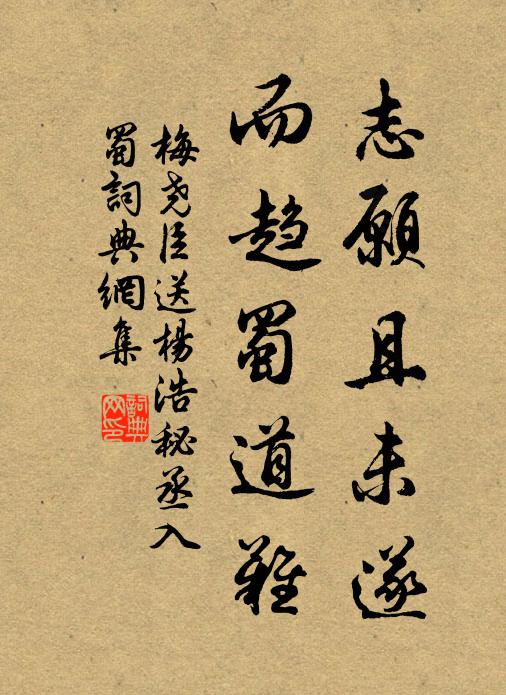 志願且未遂
而趨蜀道難
梅堯臣送楊浩秘丞入
蜀詞典網集
詞典
网印